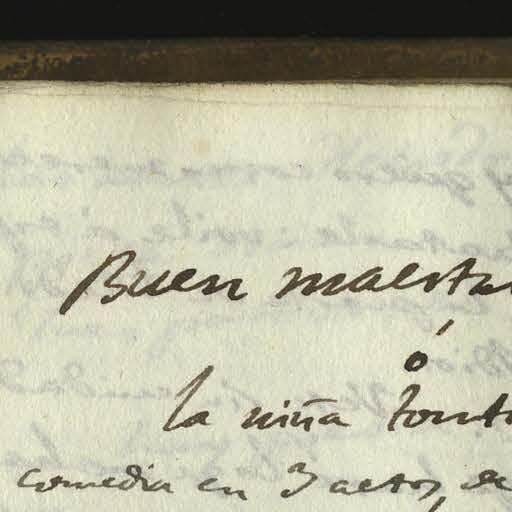 Buen maestr
ó
la niña tont
comedia en 3 actos, en